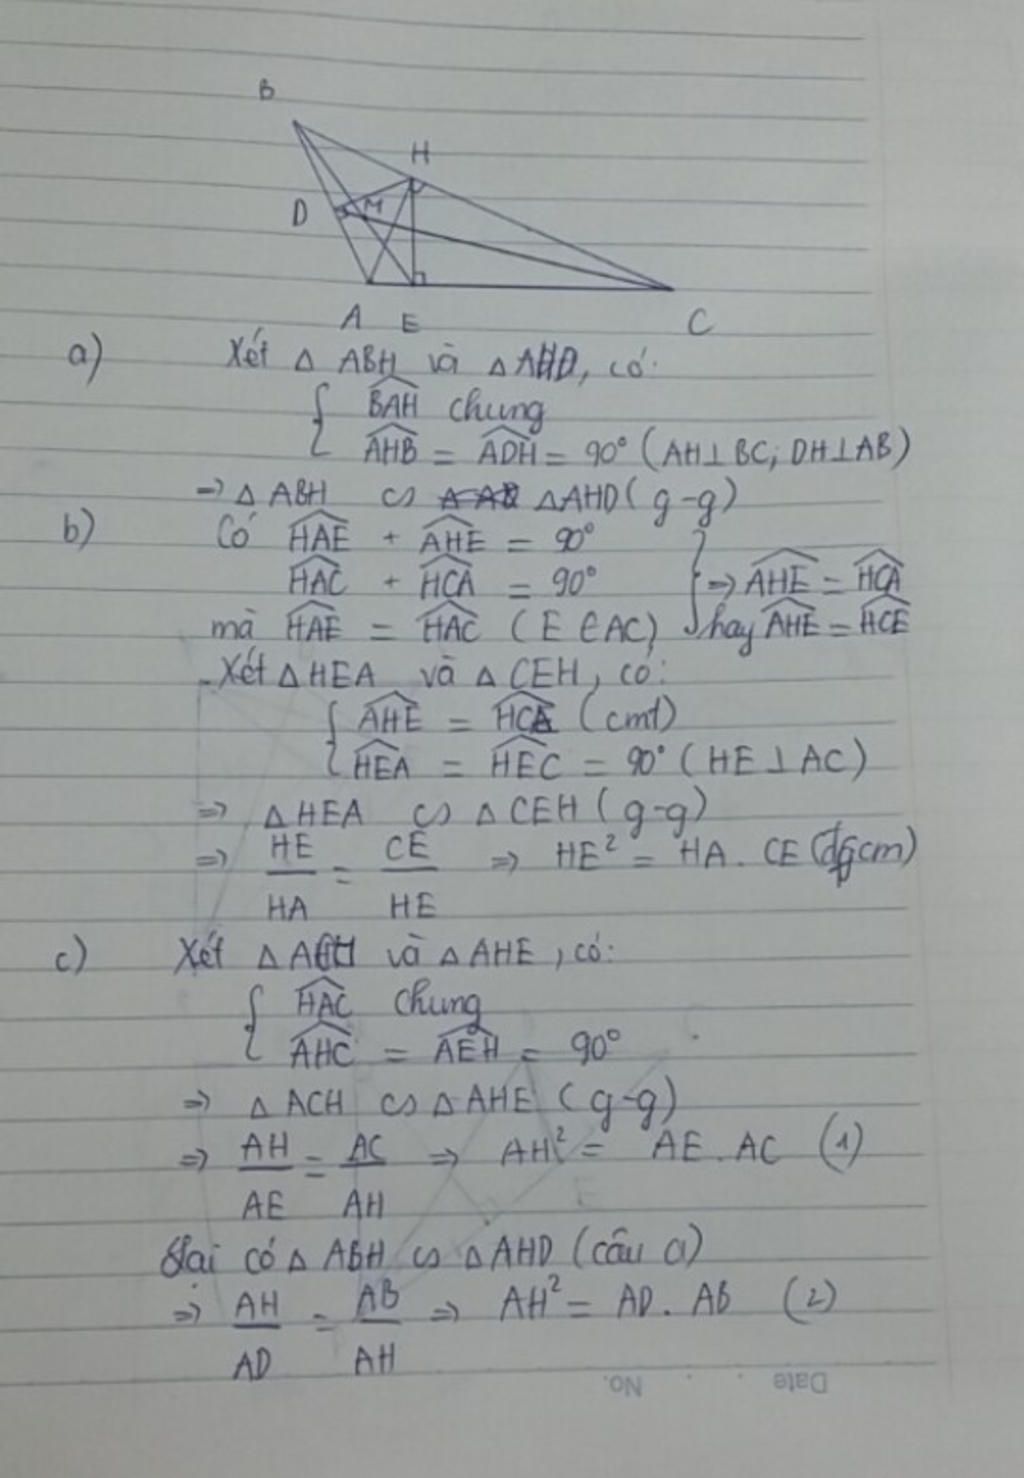 B
H
D
M
A E
C
a) Xét △ ABH và △ AHD, có:
BAH chung
AHB = ADH = 90° (AH⊥BC; DH⊥AB)
→ △ ABH ∽ △AHD (g-g)
b) Có HAE + AHE = 90°
HAC + HCA = 90° ⇒ AHE = HCA
mà HAE = HAC (E∈AC) hay AHE = HCE
Xét △HEA và △CEH, có:
AHE = HCE (cmt)
HEA = HEC = 90° (HE⊥AC)
⇒ △HEA ∽ △CEH (g-g)
⇒ HE/HA = CE/HE ⇒ HE² = HA . CE (đpcm)
c) Xét △ACH và △AHE, có:
HAC chung
AHC = AEH = 90°
⇒ △ACH ∽ △AHE (g-g)
⇒ AH/AE = AC/AH ⇒ AH² = AE . AC (1)
Lại có △ABH ∽ △AHD (câu a)
⇒ AH/AD = AB/AH ⇒ AH² = AD . AB (2)
Date . . No.